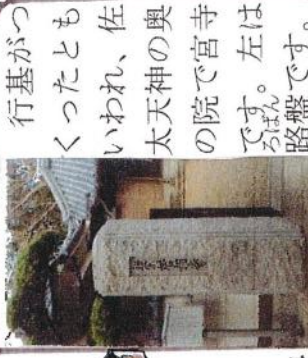 行基がつ
くったとも
いわれ、佐
太天神の奥
の院で宮寺
です。左は
ろばん
路盤です。